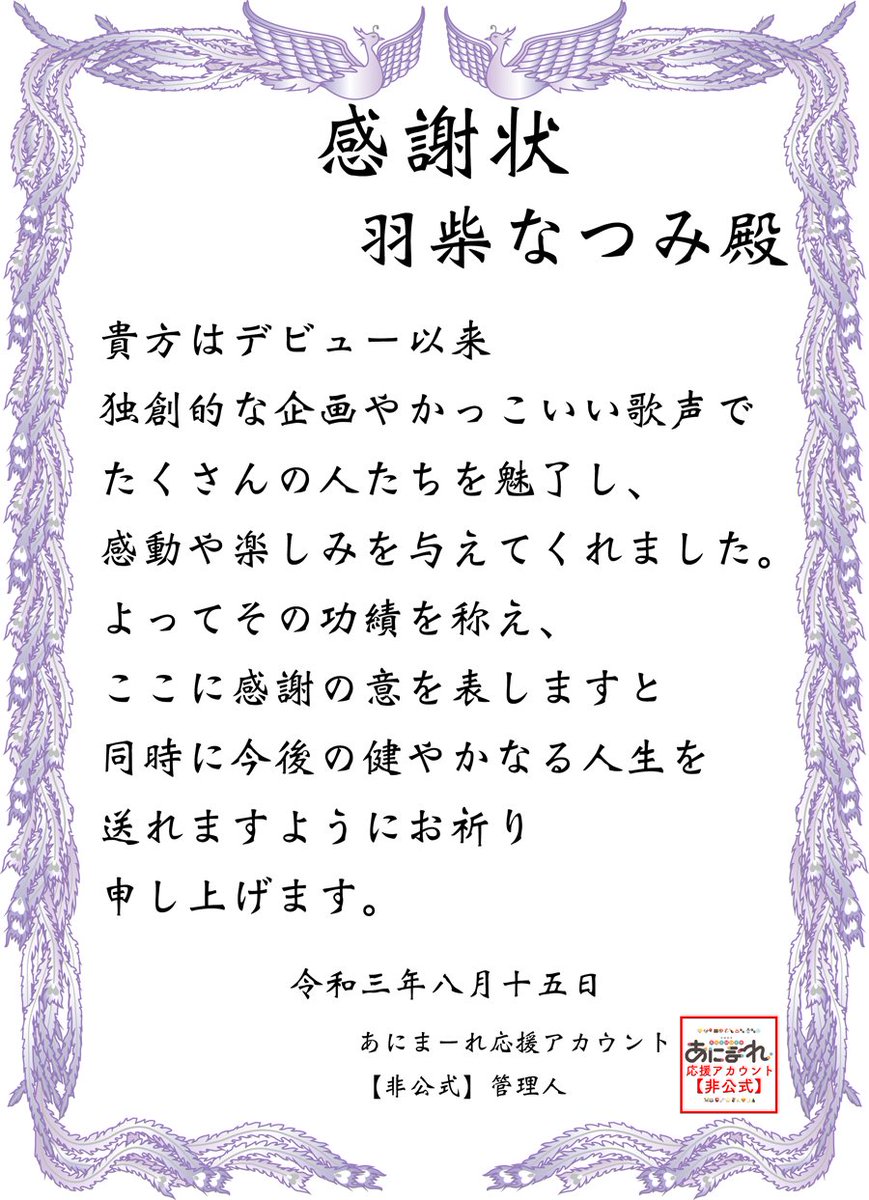 感謝状
羽柴なつみ殿
貴方はデビュー以来
独創的な企画やかっこいい歌声で
たくさんの人たちを魅了し、
感動や楽しみを与えてくれました。
よってその功績を称え、
ここに感謝の意を表しますと
同時に今後の健やかなる人生を
送れますようにお祈り
申し上げます。
令和三年八月十五日
あにまーれ応援アカウント
【非公式】管理人
あにまーれ
応援アカウント
【非公式】